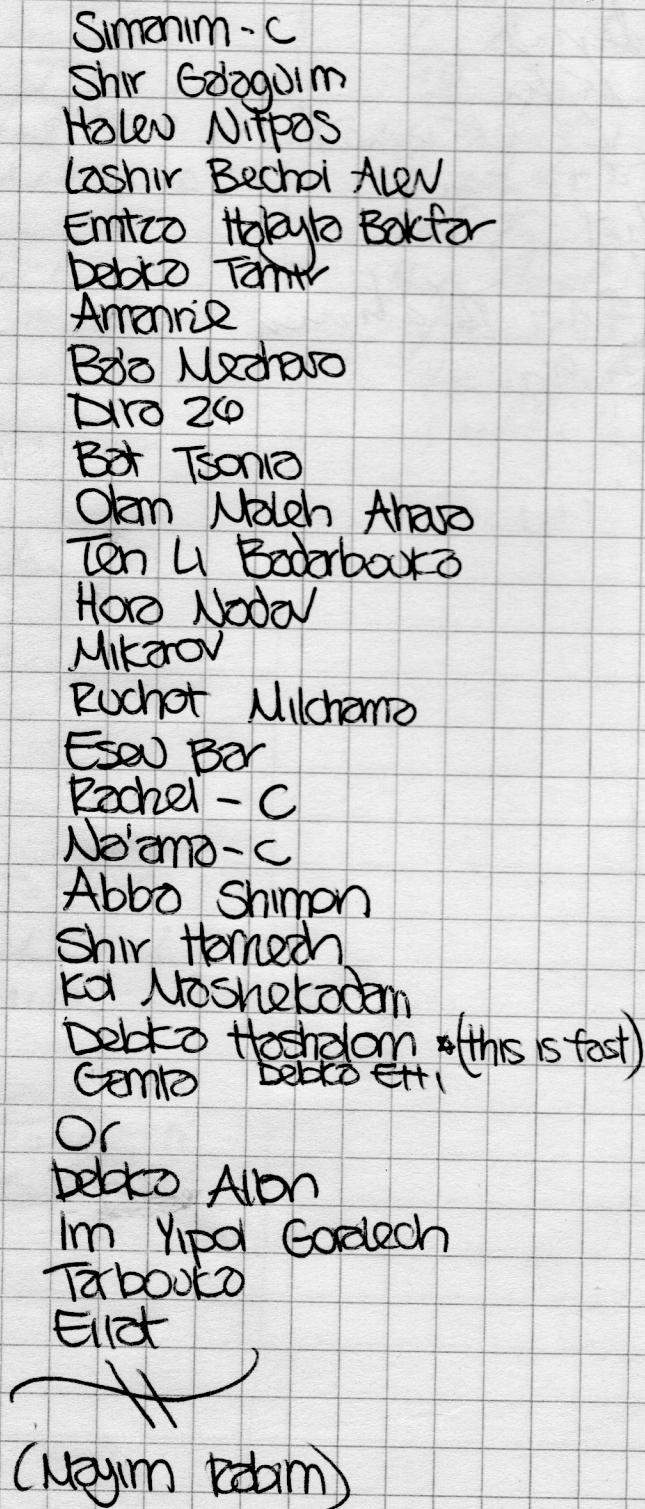 Simanim - C
Shir Ga'aguim
Halev Nitpas
Lashir Bechol Alev
Emtza Halayla Bakfar
Debka Tamir
Amanrie
Ba'a Mechava
Dira 26
Bat Tsonia
Olam Maleh Ahava
Ten Li Badarbouka
Hora Nadav
Mikarov
Ruchot Milchama
Esev Bar
Rachel - C
Na'ama - C
Abba Shimon
Shir Hamech
Kol Moshekadam
Debka Hashalom *(this is fast)
Gamra Debka Etti
Or
Debka Allon
Im Yipol Goralech
Tarbouka
Eilat
(Mayim Rabim)